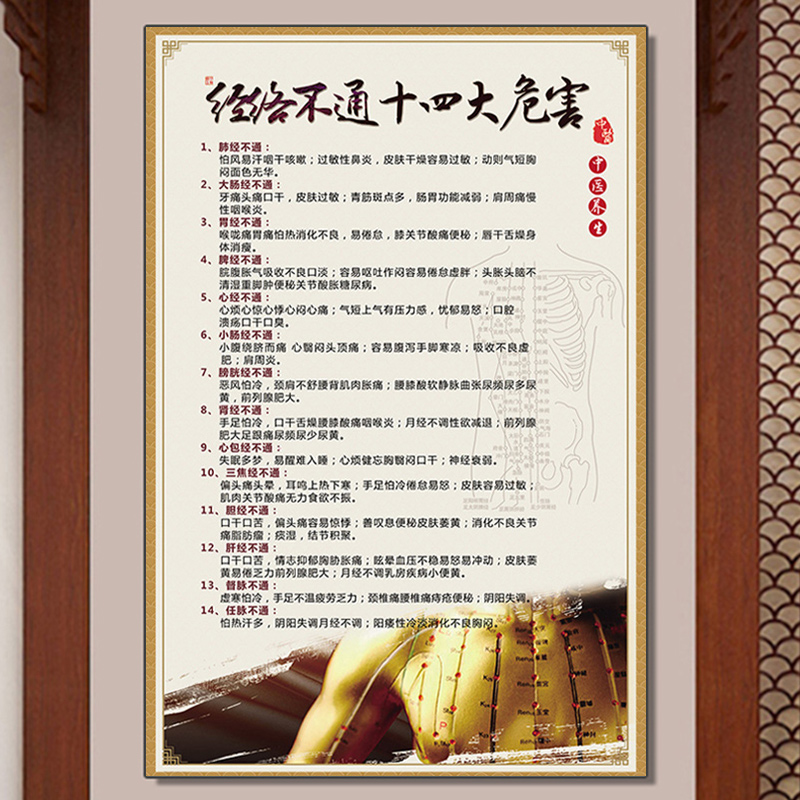 经络不通十四大危害
中医
中医养生
1、肺经不通：
怕风易汗咽干咳嗽；过敏性鼻炎，皮肤干燥容易过敏；动则气短胸
闷面色无华。
2、大肠经不通：
牙痛头痛口干，皮肤过敏；青筋斑点多，肠胃功能减弱；肩周痛慢
性咽喉炎。
3、胃经不通：
喉咙痛胃痛怕热消化不良，易倦怠，膝关节酸痛便秘；唇干舌燥身
体消瘦。
4、脾经不通：
脘腹胀气吸收不良口淡；容易呕吐作闷容易倦怠虚胖；头胀头脑不
清湿重脚肿便秘关节酸胀糖尿病。
5、心经不通：
心烦心惊心悸心闷心痛；气短上气有压力感，忧郁易怒；口腔
溃疡口干口臭。
6、小肠经不通：
小腹绕脐而痛 心翳闷头顶痛；容易腹泻手脚寒凉；吸收不良虚
肥；肩周炎。
7、膀胱经不通：
恶风怕冷，颈肩不舒腰背肌肉胀痛；腰膝酸软静脉曲张尿频尿多尿
黄，前列腺肥大。
8、肾经不通：
手足怕冷，口干舌燥腰膝酸痛咽喉炎；月经不调性欲减退；前列腺
肥大足跟痛尿频尿少尿黄。
9、心包经不通：
失眠多梦，易醒难入睡；心烦健忘胸翳闷口干；神经衰弱。
10、三焦经不通：
偏头痛头晕，耳鸣上热下寒；手足怕冷倦怠易怒；皮肤容易过敏；
肌肉关节酸痛无力食欲不振。
11、胆经不通：
口干口苦，偏头痛容易惊悸；善叹息便秘皮肤萎黄；消化不良关节
痛脂肪瘤；痰湿，结节积聚。
12、肝经不通：
口干口苦，情志抑郁胸胁胀痛；眩晕血压不稳易怒易冲动；皮肤萎
黄易倦乏力前列腺肥大；月经不调乳房疾病小便黄。
13、督脉不通：
虚寒怕冷，手足不温疲劳乏力；颈椎痛腰椎痛痔疮便秘；阴阳失调。
14、任脉不通：
怕热汗多，阴阳失调月经不调；阳痿性冷淡消化不良胸闷。